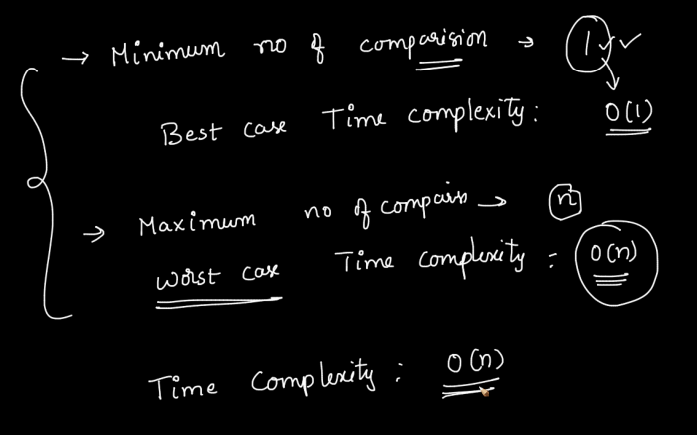 → Minimum no of comparision → 1
Best case Time complexity: O(1)
→ Maximum no of compairs → n
Worst case Time complexity: O(n)
Time complexity: O(n)